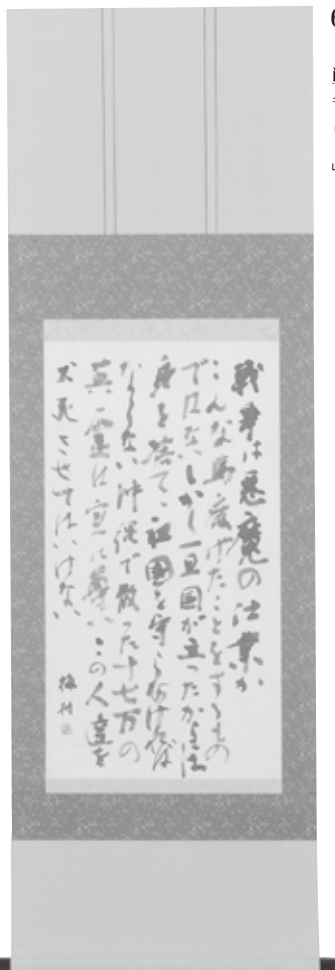 戦争は悪魔の仕業か
こんな馬鹿げたことをするもの
ではない、しかし一旦国が立ったからには
身を捨て、祖国を守らなければ
ならない、沖縄で散った十七万の
英霊は実に尊い、この人達を
犬死させてはいけない